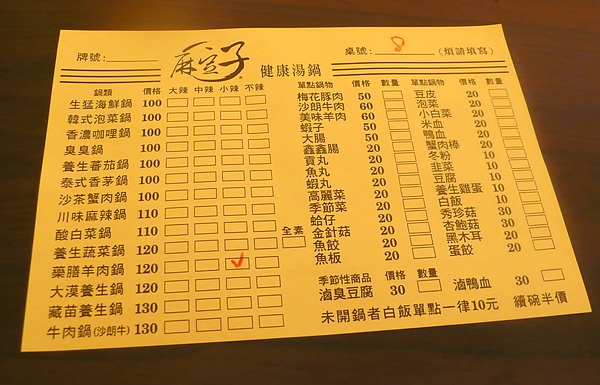 牌號:
麻豆子 健康湯鍋
桌號: 8 (煩請填寫)
鍋類 價格 大辣 中辣 小辣 不辣
生猛海鮮鍋 100
韓式泡菜鍋 100
香濃咖哩鍋 100
臭臭鍋 100
養生蕃茄鍋 100
泰式香茅鍋 100
沙茶蟹肉鍋 100
川味麻辣鍋 110
酸白菜鍋 110 全素
養生蔬菜鍋 120
藥膳羊肉鍋 120 ✓
大漠養生鍋 120
藏苗養生鍋 130
牛肉鍋(沙朗牛) 130
單點鍋物 價格 數量
梅花豚肉 50
沙朗牛肉 60
美味羊肉 60
蝦子 50
大腸 50
鑫鑫腸 20
貢丸 20
魚丸 20
蝦丸 20
高麗菜 20
季節菜 20
蛤仔 20
金針菇 20
魚餃 20
魚板 20
單點鍋物 價格 數量
豆皮 20
泡菜 20
小白菜 20
米血 20
鴨血 20
蟹肉棒 20
冬粉 10
韭菜 10
豆腐 10
養生雞蛋 10
白飯 10
秀珍菇 30
杏鮑菇 30
黑木耳 20
蛋餃 20
季節性商品 價格 數量
滷臭豆腐 30
滷鴨血 30
未開鍋者白飯單點一律10元 續碗半價